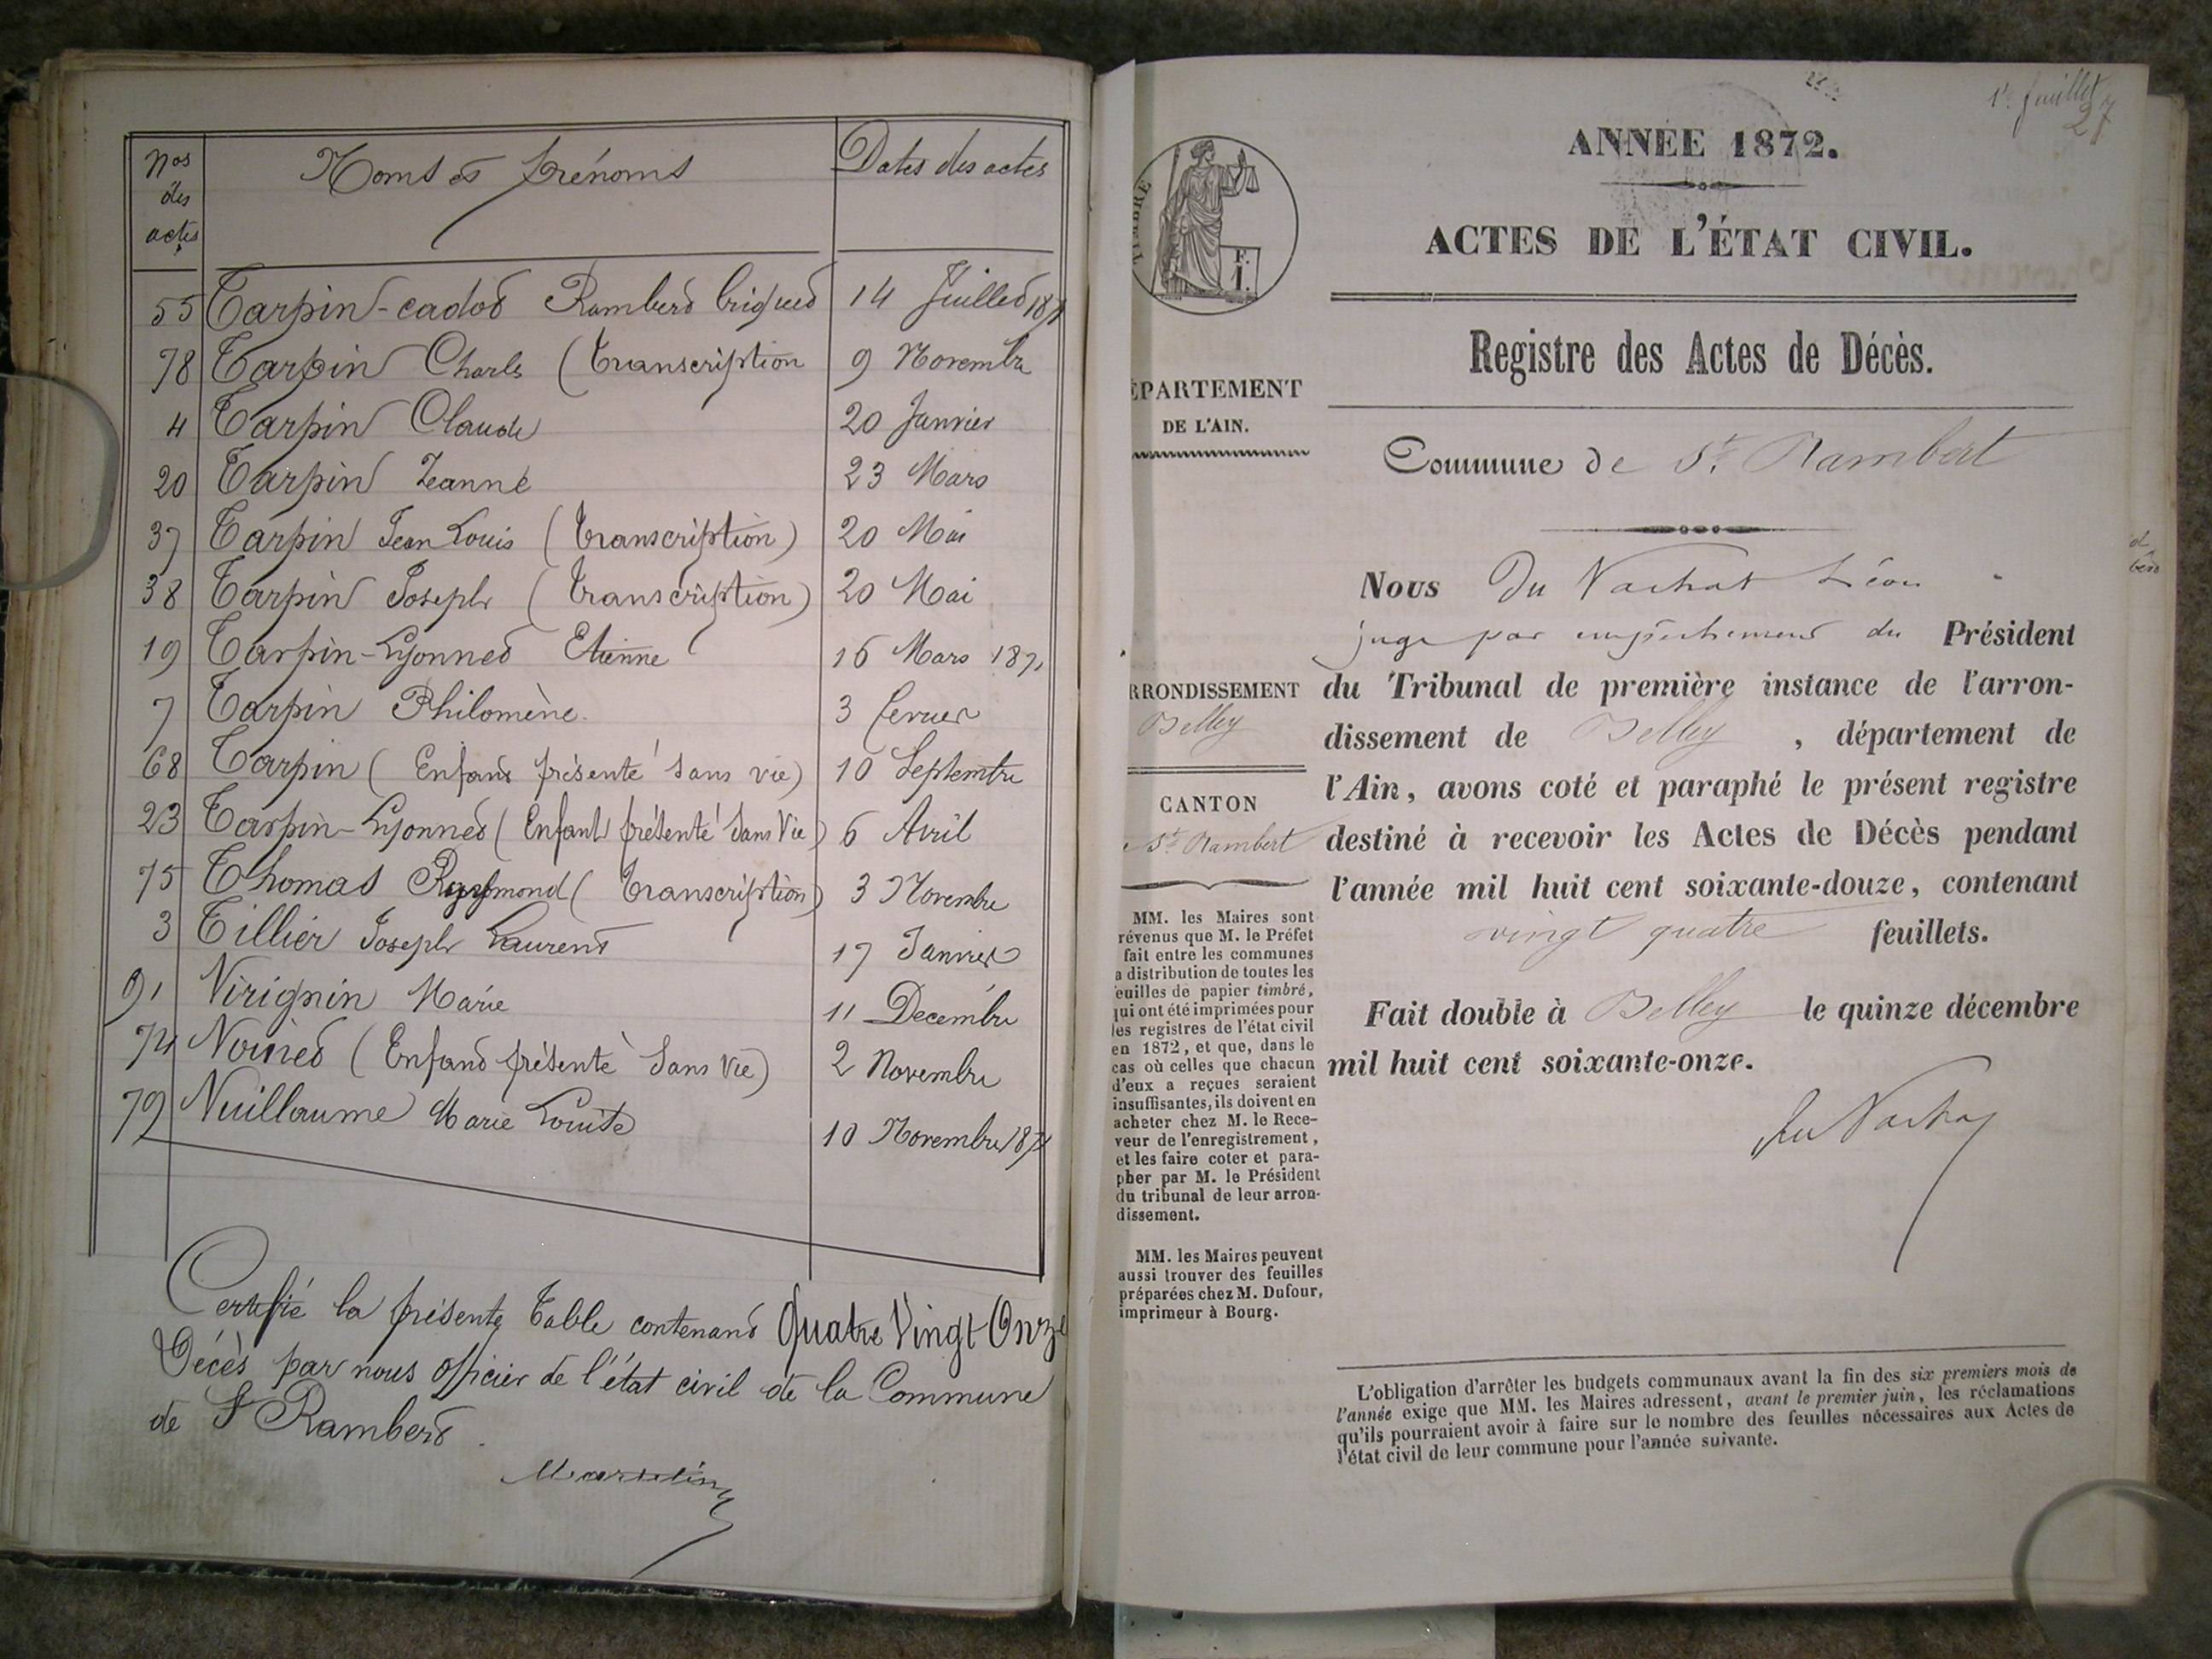 Nos des actes Noms et prénoms Dates des actes
55 Tarpin-cadot Rambert 14 Juillet 1871
78 Tarpin Charles (transcription 9 Novembre
4 Tarpin Claude 20 Janvier
20 Tarpin Jeanne 23 Mars
37 Tarpin Jean Louis (transcription) 20 Mai
38 Tarpin Joseph (transcription) 20 Mai
19 Tarpin-Lyonnet Etienne 16 Mars 1871
7 Tarpin Philomène 3 fevrier
68 Tarpin (Enfant présenté sans vie) 10 Septembre
23 Tarpin-Lyonnet (Enfant présenté sans Vie) 6 Avril
75 Thomas Raymond (transcription) 3 Novembre
3 Tillier Joseph Laurent 17 Janvier
91 Virignin Marie 11 Decembre
74 Voinet (Enfant présenté sans vie) 2 Novembre
79 Vuillaume Marie Louise 10 Novembre 1871
Certifié la présente table contenant Quatre Vingt Onze
Décès par nous officier de l'état civil de la Commune
de St Rambert.
1er feuillet
27
ANNÉE 1872.
ACTES DE L'ÉTAT CIVIL.
TIMBRE
F.
1.
Registre des Actes de Décès.
ÉPARTEMENT
DE L'AIN.
Commune de St. Rambert
Nous Du Vachat Léon
juge par empêchement du Président
du Tribunal de première instance de l'arron-
dissement de Belley, département de
l'Ain, avons coté et paraphé le présent registre
destiné à recevoir les Actes de Décès pendant
l'année mil huit cent soixante-douze, contenant
vingt quatre feuillets.
Fait double à Belley le quinze décembre
mil huit cent soixante-onze.
Du Vachat
RRONDISSEMENT
Belley
CANTON
St. Rambert
MM. les Maires sont
révenus que M. le Préfet
fait entre les communes
a distribution de toutes les
euilles de papier timbré,
qui ont été imprimées pour
les registres de l'état civil
en 1872, et que, dans le
cas où celles que chacun
d'eux a reçues seraient
insuffisantes, ils doivent en
acheter chez M. le Rece-
veur de l'enregistrement,
et les faire coter et para-
pher par M. le Président
du tribunal de leur arron-
dissement.
MM. les Maires peuvent
aussi trouver des feuilles
préparées chez M. Dufour,
imprimeur à Bourg.
L'obligation d'arrêter les budgets communaux avant la fin des six premiers mois de
l'année exige que MM. les Maires adressent, avant le premier juin, les réclamations
qu'ils pourraient avoir à faire sur le nombre des feuilles nécessaires aux Actes de
l'état civil de leur commune pour l'année suivante.